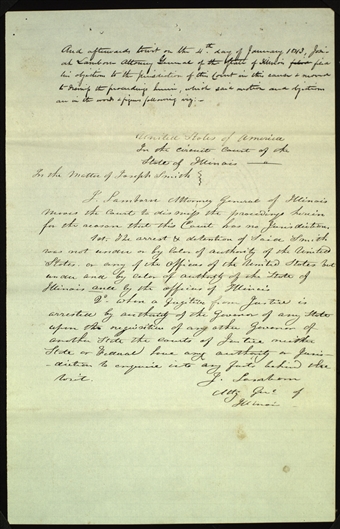 And afterwards towit on the 4th day of January 1843, Josi-
ah Lamborn Attorney General of the State of Illinois files
his objection to the jurisdiction of this Court in this cause & moved
to dismiss the proceedings herein, which said motion and objections
are in the words & figures following viz: -
United States of America
In the circuit Court of the
State of Illinois
In the Matter of Joseph Smith }
J. Lamborn Attorney General of Illinois
moves the Court to dismiss the proceedings herein
for the reason that this Court has no jurisdiction.
1st. The arrest & detention of Said Smith
was not under or by Color of authority of the United
States, or any of the Officers of the United States but
under and by Color of authority of the State of
Illinois and by the officers of Illinois
2d. when a fugitive from Justice is
arrested by authority of the Governor of any State
upon the requisition of any other Governor of
another State the courts of Justice neither
State or Federal have any authority or Juris-
-diction to enquire into any facts behind the
Writ.
J. Lamborn
Atty Genl of
Illinois